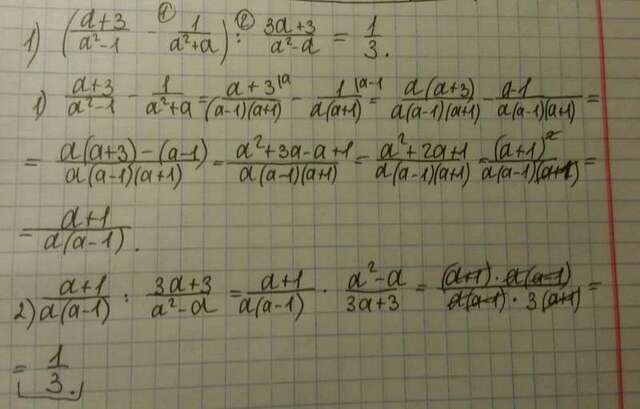 1) ( (a+3)/(a²-1) -① 1/(a²+a) ) :② (3a+3)/(a²-a) = 1/3.
1) (a+3)/(a²-1) - 1/(a²+a) = (a+3|a)/((a-1)(a+1)) - (1|a-1)/(a(a+1)) = a(a+3)/(a(a-1)(a+1)) - (a-1)/(a(a-1)(a+1)) =
= (a(a+3)-(a-1))/(a(a-1)(a+1)) = (a²+3a-a+1)/(a(a-1)(a+1)) = (a²+2a+1)/(a(a-1)(a+1)) = (a+1)²/(a(a-1)(a+1)) =
= (a+1)/(a(a-1)).
2) (a+1)/(a(a-1)) : (3a+3)/(a²-a) = (a+1)/(a(a-1)) · (a²-a)/(3a+3) = ((a+1)·a(a-1))/(a(a-1)·3(a+1)) =
= 1/3.